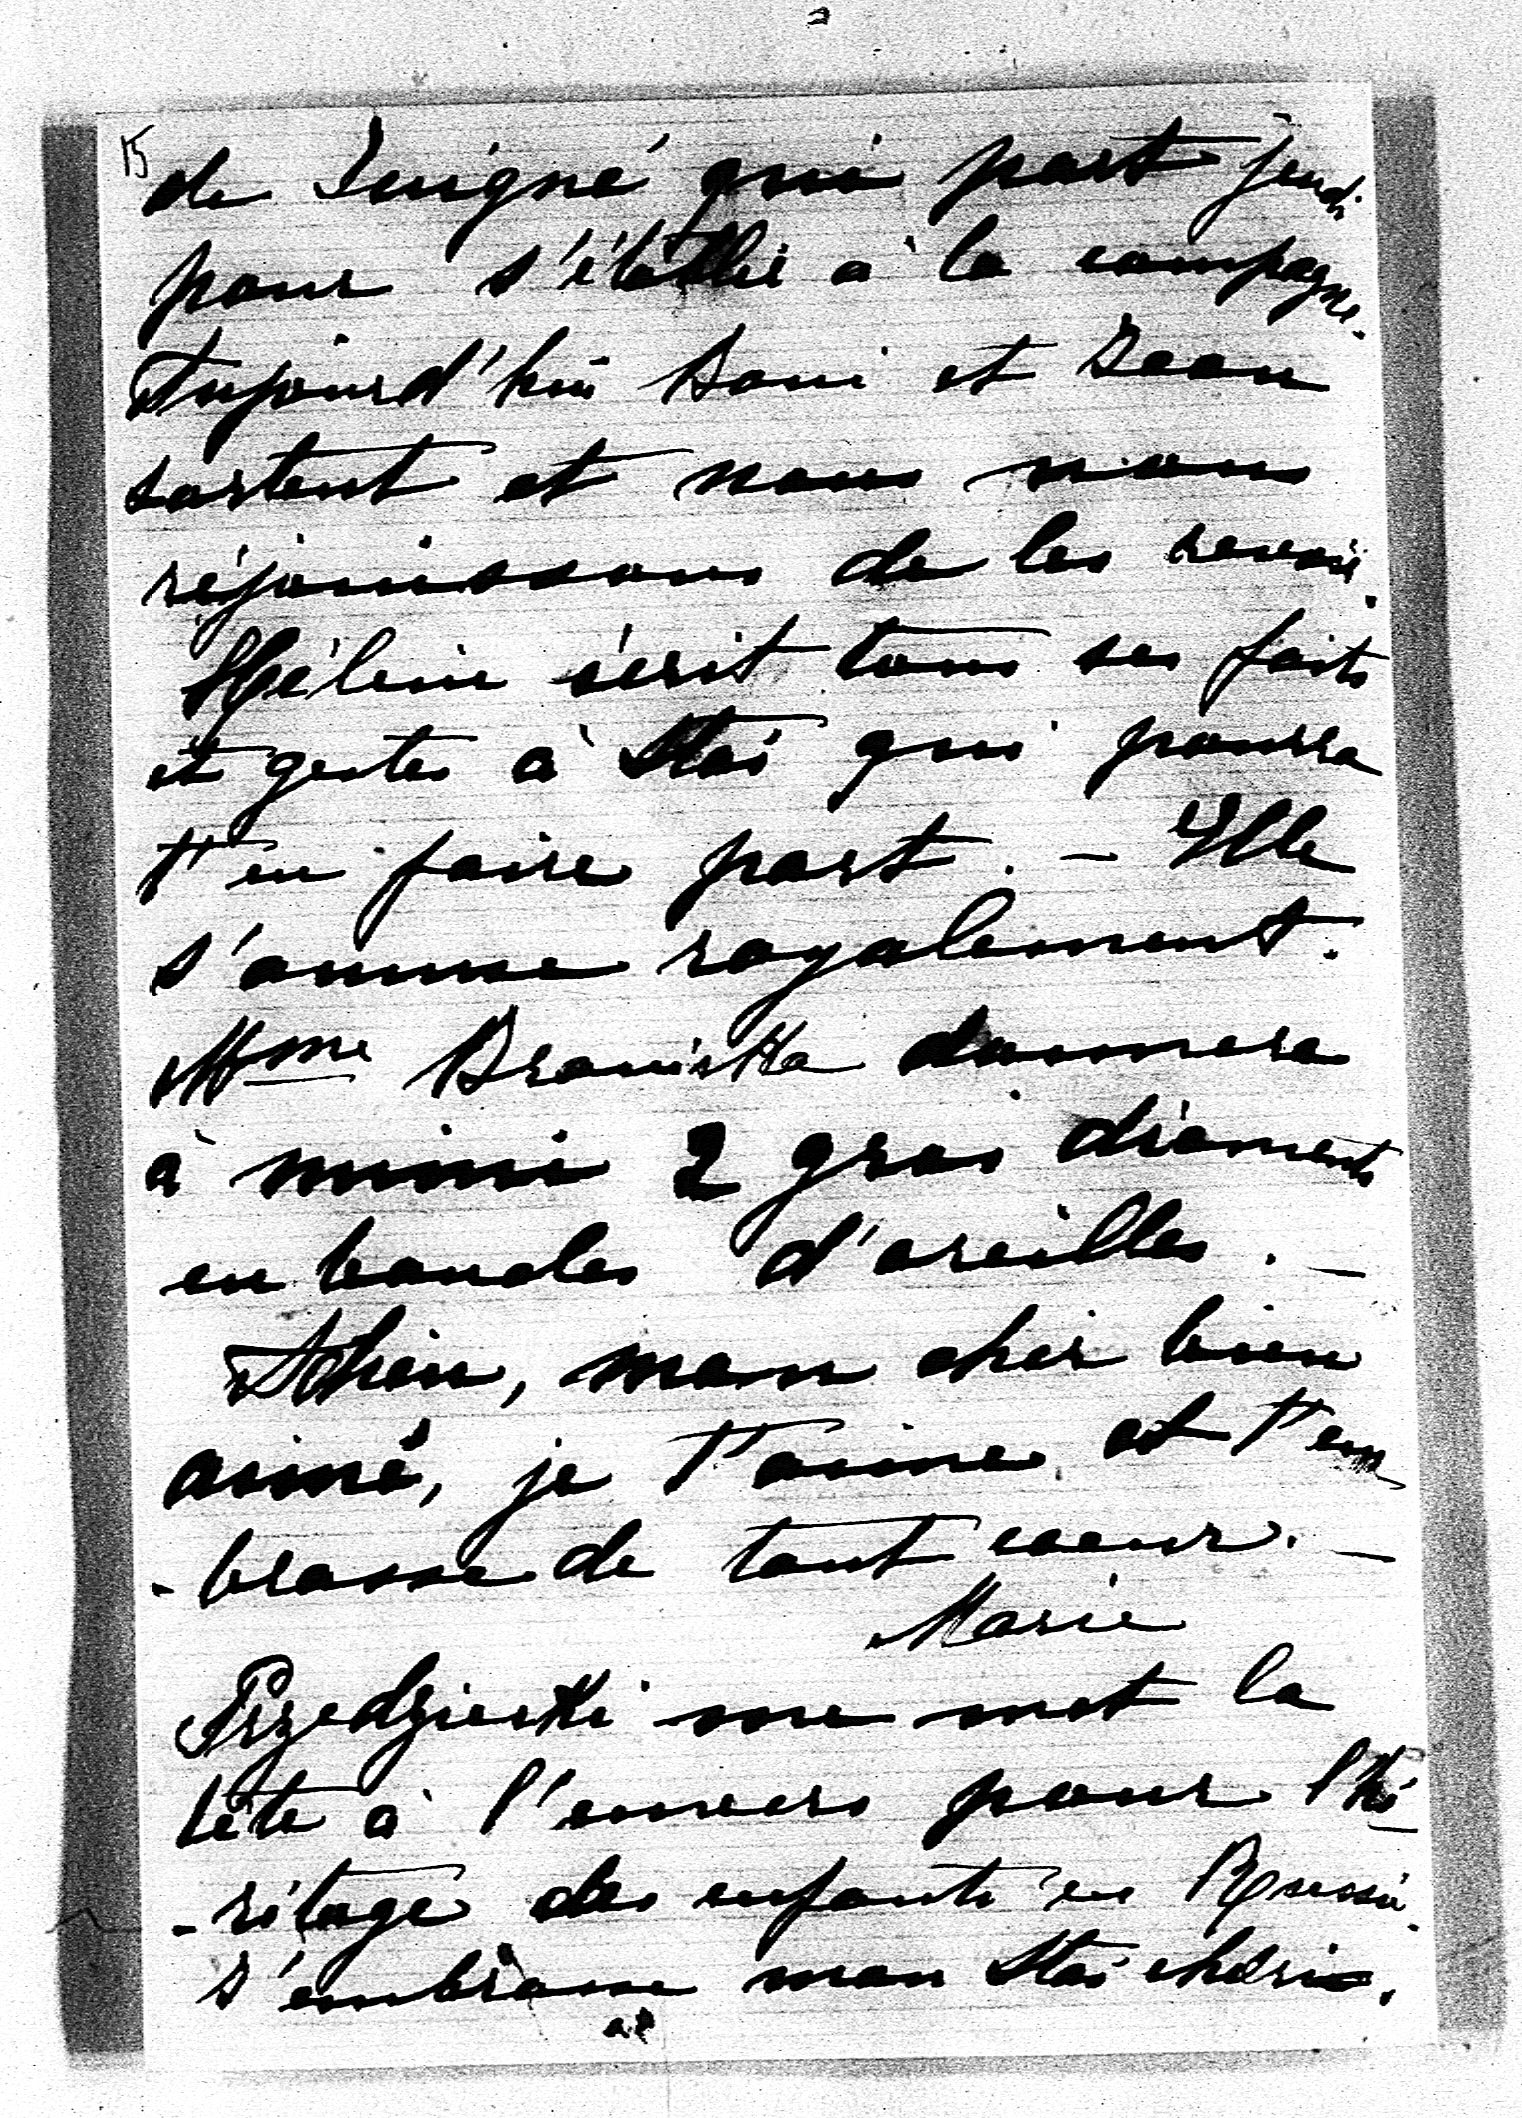 15
de Juigné qui part jeudi
pour s'établir à la campagne.
Aujourd'hui Boni et Jean
sortent et nous nous
réjouissons de les revoir.
Hélène écrit tous ses faits
et gestes à Stas qui pourra
t'en faire part. - Elle
s'amuse royalement.
Mme Branicka donnera
à mimi 2 gros diamants
en boucles d'oreilles. -
Adieu, mon cher bien
aimé, je t'aime et t'em
-brasse de tout coeur. -
Marie
Przedziecki me met la
tête à l'envers pour l'hé
-ritage des enfants en Russie.
J'embrasse mon Stas chéri.